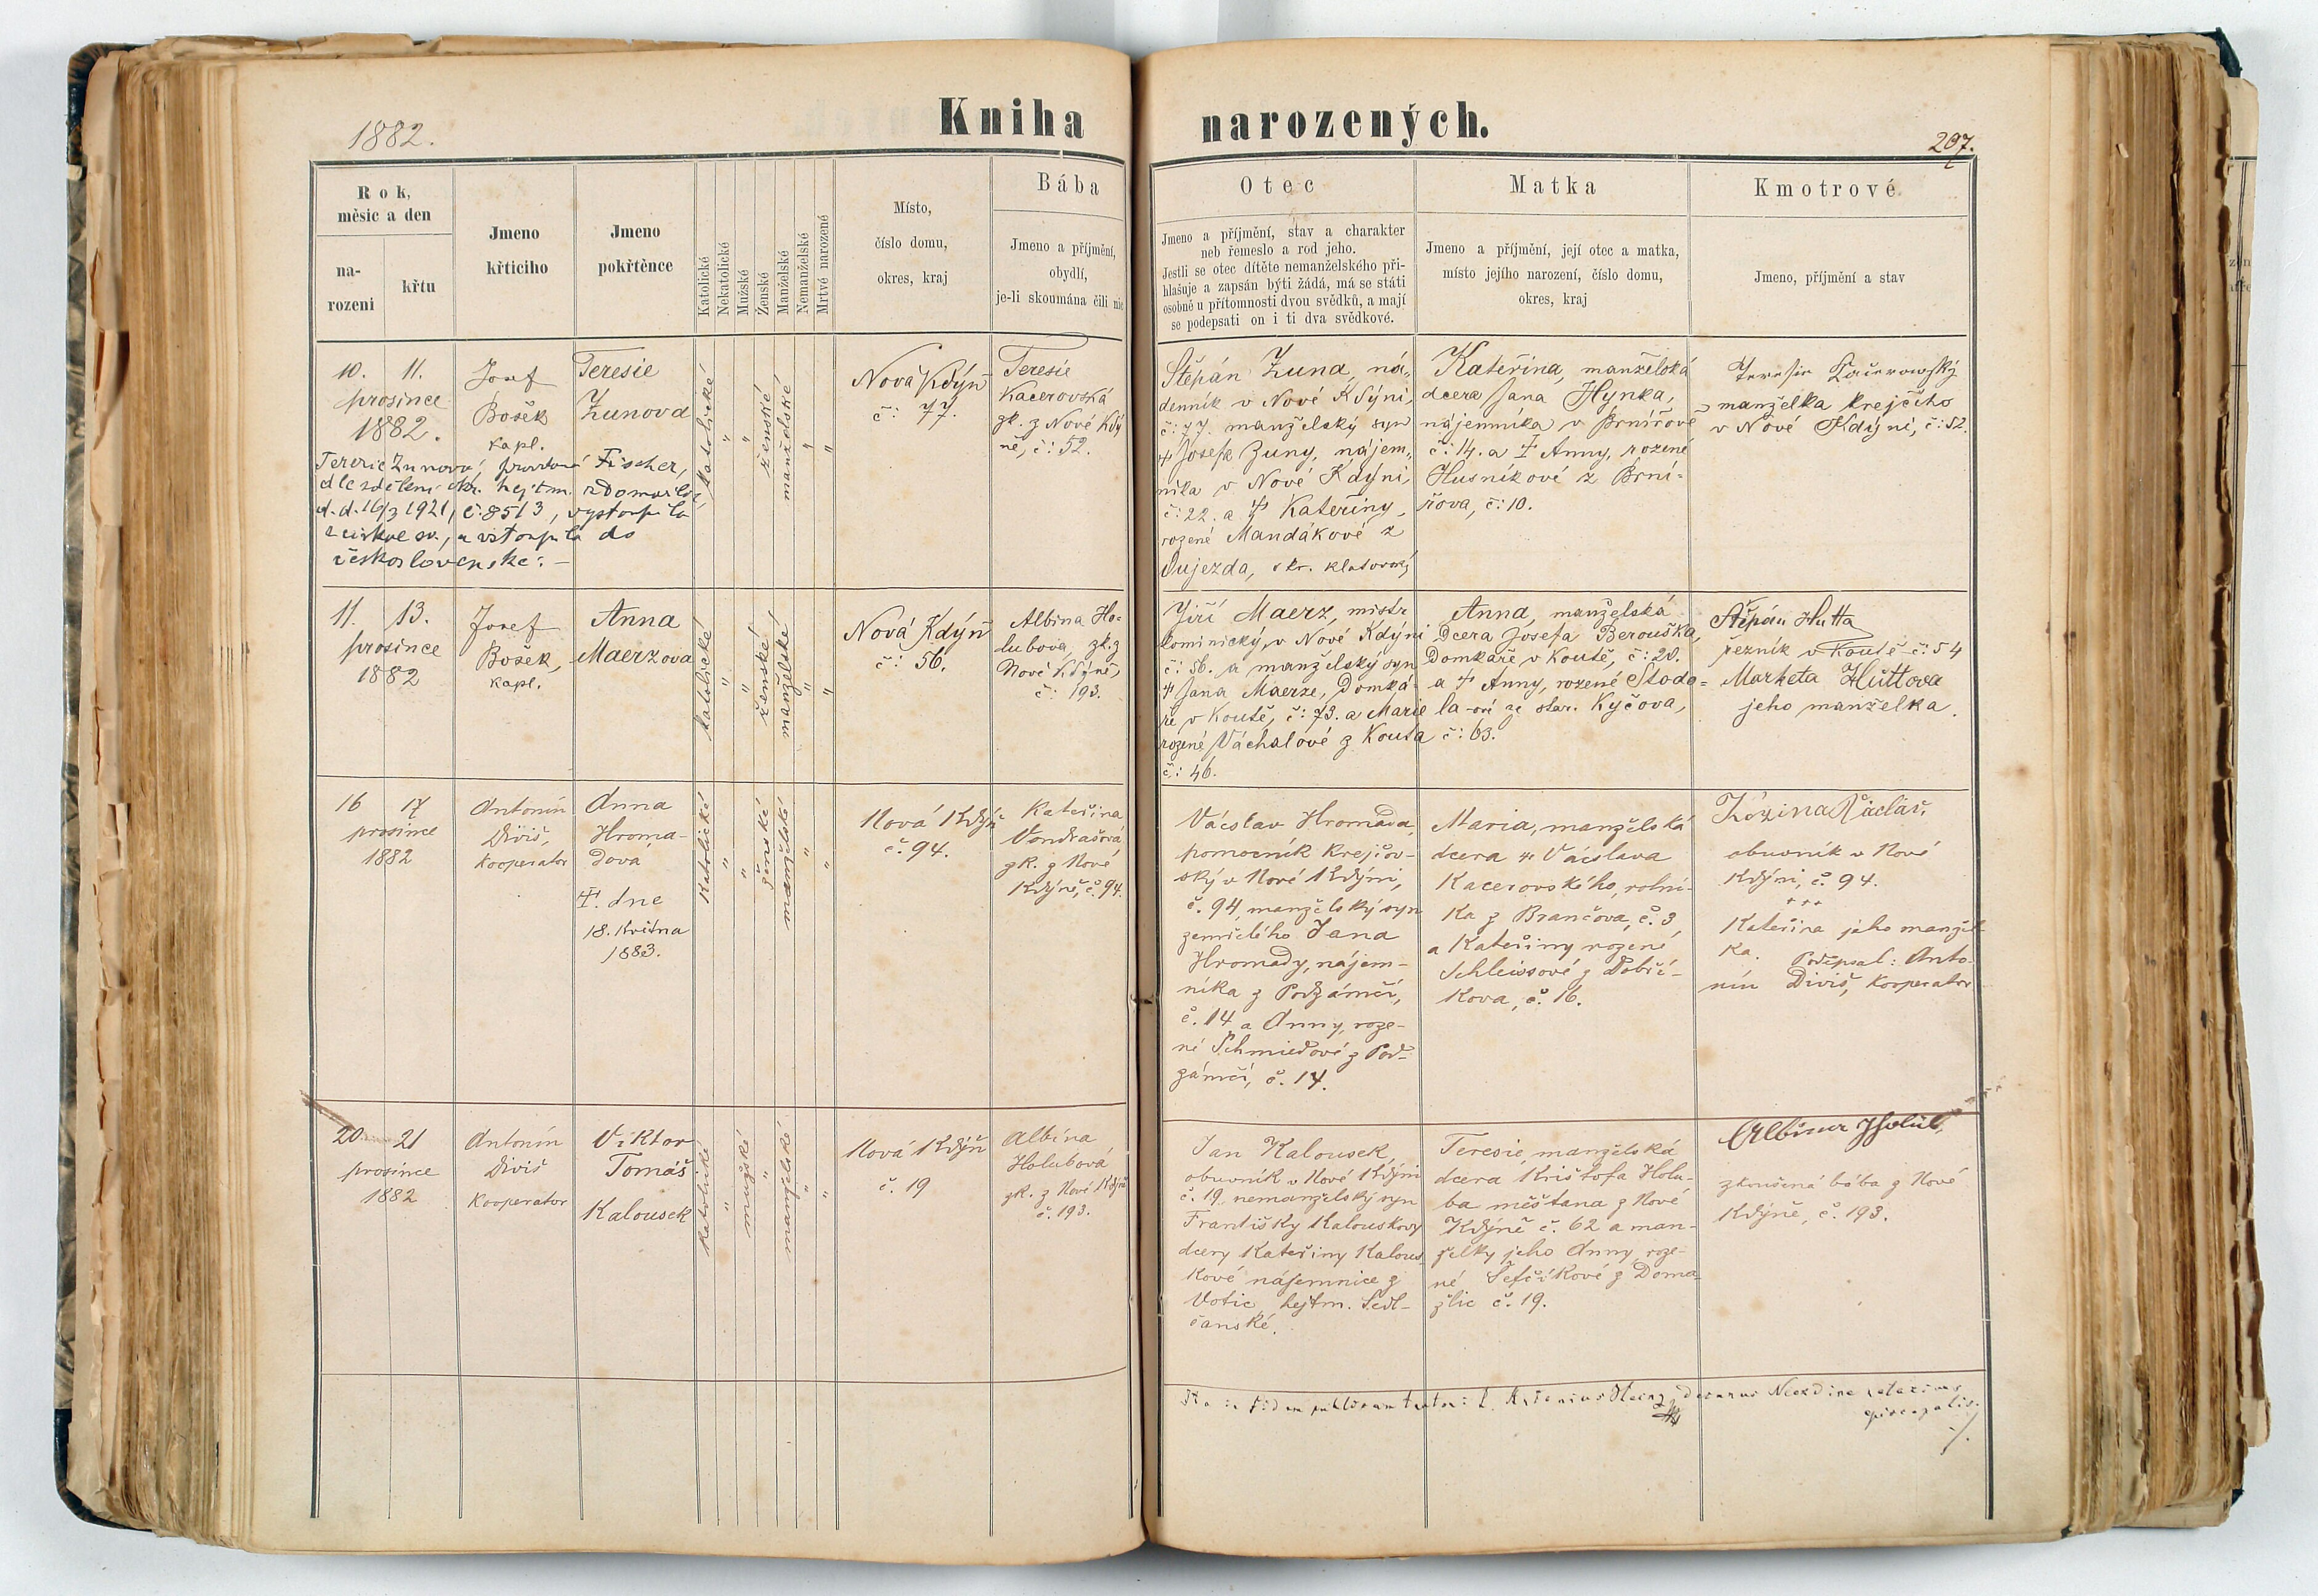 1882.
Kniha narozených.
297.
Rok,
měsíc a den
na-
rozeni
křtu
Jmeno
křticiho
Jmeno
pokřtěnce
Katolické
Nekatolické
Mužské
Ženské
Manželské
Nemanželské
Mrtvě narozené
Místo,
číslo domu,
okres, kraj
Bába
Jmeno a příjmění,
obydlí,
je-li skoumána čili nic
Otec
Jmeno a příjmění, stav a charakter
neb řemeslo a rod jeho.
Jestli se otec dítěte nemanželského při-
hlašuje a zapsán býti žádá, má se státi
osobně u přítomnosti dvou svědků, a mají
se podepsati on i ti dva svědkové.
Matka
Jmeno a příjmění, její otec a matka,
místo jejího narození, číslo domu,
okres, kraj
Kmotrové
Jmeno, příjmění a stav
10. 11.
prosince
1882.
Josef
Bošek
kapl.
Teresie
Zunova
katolické
"
"
ženské
manželské
"
"
Nová Kdýň
č: 77.
Teresie
Kacerovská
zk. z Nové Kdý
ně, č: 52.
Štěpán Zuna, ná-
denník v Nové Kdýni,
č: 77. manželský syn
† Josefa Zuny, nájem-
níka v Nové Kdýni,
č: 22. a † Kateřiny,
rozené Mandákové z
Oujezda, okr. klatovský
Kateřina, manželská
dcera Jana Hynka,
nájemníka v Brnířově
č: 14. a † Anny, rozené
Husníkové z Brní-
řova, č: 10.
Teresie Kacerowský
manželka krejčího
v Nové Kdýni, č: 52.
Teresie Zunová, provdaná Fischer,
dle sdělení okr. hejtm. z Domažlic,
d. d. 16/3 1921, č: 8513, vystoupila
z církve sv., a vstoupila do
československé: –
11. 13.
prosince
1882
Josef
Bošek,
kapl.
Anna
Maerzova
katolické
"
"
ženské
manželské
"
"
Nová Kdýň
č: 56.
Albina Ho-
lubova, zk. z
Nové Kdýně,
č: 193.
Jiří Maerz, mistr
kominický, v Nové Kdýni
č: 56. a manželský syn
† Jana Maerze, Domká-
ře v Koutě, č: 73. a Marie
rozené Váchalové z Kouta
č: 46.
Anna, manželská
Dcera Josefa Berouška,
Domkaře v Koutě, č: 20.
a † Anny, rozené Stodo-
la-ové ze star. Kyčova,
č: 63.
Štěpán Hutta
řezník v Koutě č: 54
Marketa Huttova
jeho manželka.
16 17
prosince
1882
Antonín
Diviš,
kooperator
Anna
Hroma-
dova
†. dne
18. Května
1883.
Katolické
"
"
ženské
manželské
"
"
Nová Kdýň
č. 94.
Kateřina
Vondrašová
zk. z Nové
Kdýně, č. 94.
Václav Hromada,
pomocník krejčov-
ský v Nové Kdýni,
č. 94, manželský syn
zemřelého Jana
Hromady, nájem-
níka z Podzámčí,
č. 14 a Anny, roze-
né Schmiedové z Pod-
zámčí, č. 14.
Maria, manželská
dcera † Václava
Kacerovského, rolní-
ka z Brančova, č. 3,
a Kateřiny rozené
Schleissové z Dobří-
kova, č. 16.
obuvník v Nové
Kdýni, č. 94.
+++
Kateřina jeho manžel-
ka. Podepsal: Anto-
nín Diviš, kooperator
20 21
prosince
1882
Antonín
Diviš
kooperator
Viktor
Tomáš
Kalousek
katolické
"
mužské
"
manželské
"
"
Nová Kdýň
č. 19
Albína
Holubová
zk. z Nové Kdýně
č. 193.
Jan Kalousek,
obuvník v Nové Kdýni
č. 19. nemanželský syn
Františky Kalouskovy
dcery Kateřiny Kalous-
kové nájemnice z
Votic, hejtm. Sedl-
čanské.
Teresie, manželská
dcera Krištofa Holu-
ba měštana z Nové
Kdýně č. 62 a man-
želky jeho Anny, roze-
né Šefčíkové z Doma-
žlic č. 19.
Albina Holub,
zkoušená bába z Nové
Kdýně, č. 193.
Ita in fidem publicam testor: L. Antonius Heinz, decanus Neo-Kdine notarius
episcopalis.